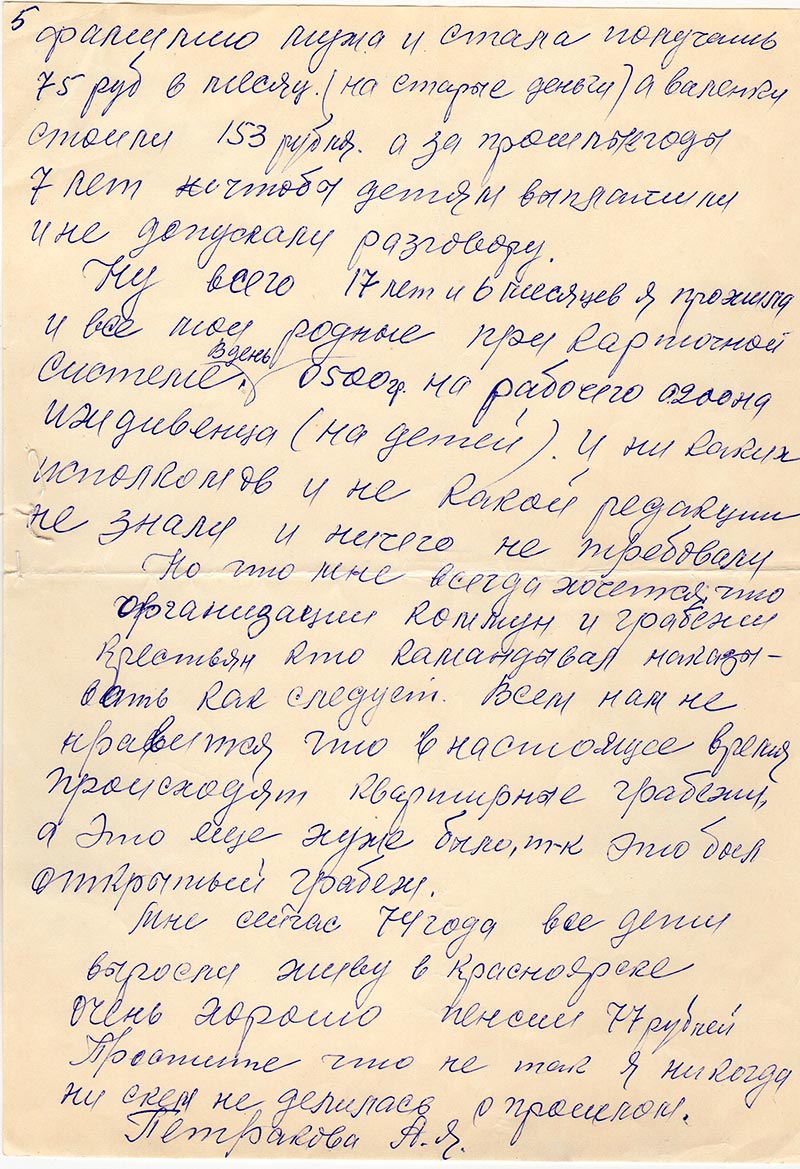 5
фамилию мужа и стала получать
75 руб в месяц. (на старые деньги) а валенки
стоили 153 рубля. а за прошлые годы
7 лет ничтобы детям выплатили
и не допускали разговору.
Ну всего 17 лет и 6 месяцев я прожила
и все мои родные при карточной
системе. В день 0500гр. на рабочего 0200на
иждивенца (на детей). И ни каких
исполкомов и не какой редакции
не знали и ничего не требовали
Но что мне всегда хочется, что
организации коммун и грабежи
крестьян кто камандывал наказы-
вать как следует. Всем нам не
нравится что в настоящее время
происходят квартирные грабежи,
а это еще хуже было, т-к это был
открытый грабеж.
Мне сейчас 74 года все дети
выросли живу в Красноярске
очень хорошо пенсии 77 рублей
Простите что не так я никогда
ни скем не делилась о прошлом.
Петракова А.Я.